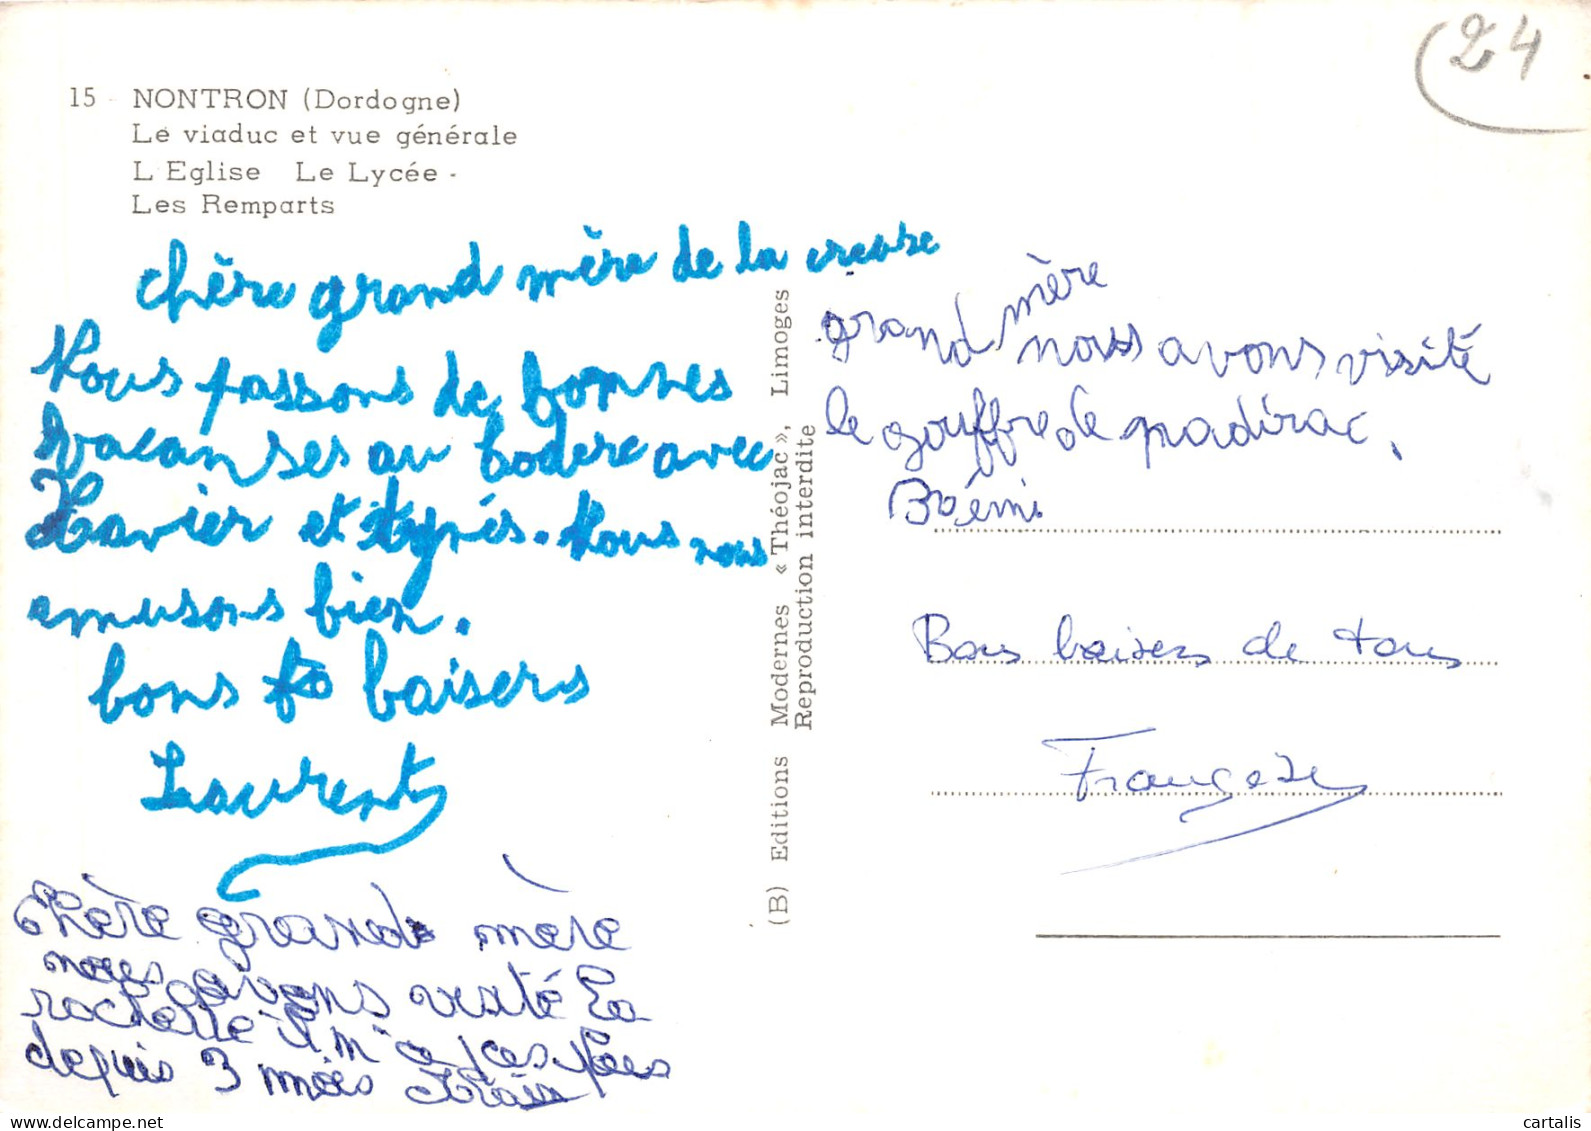 24
15 - NONTRON (Dordogne)
Le viaduc et vue générale
L'Eglise Le Lycée -
Les Remparts
chère grand mère de la creuse
Nous passons de bonnes
vacanses au avec
Xavier et Agnés. Nous nous
amusons bien.
bons baisers
Laurent
chère grande mère
nous avons visité la
rochelle il n'a pas plus
depuis 3 mois
(B) Editions Modernes « Théojac », Limoges
Reproduction interdite
grand mère
nous avons visité
le gouffre de padirac.
Rémi
Bons baisers de tous
Françoise
delcampe.net
cartalis